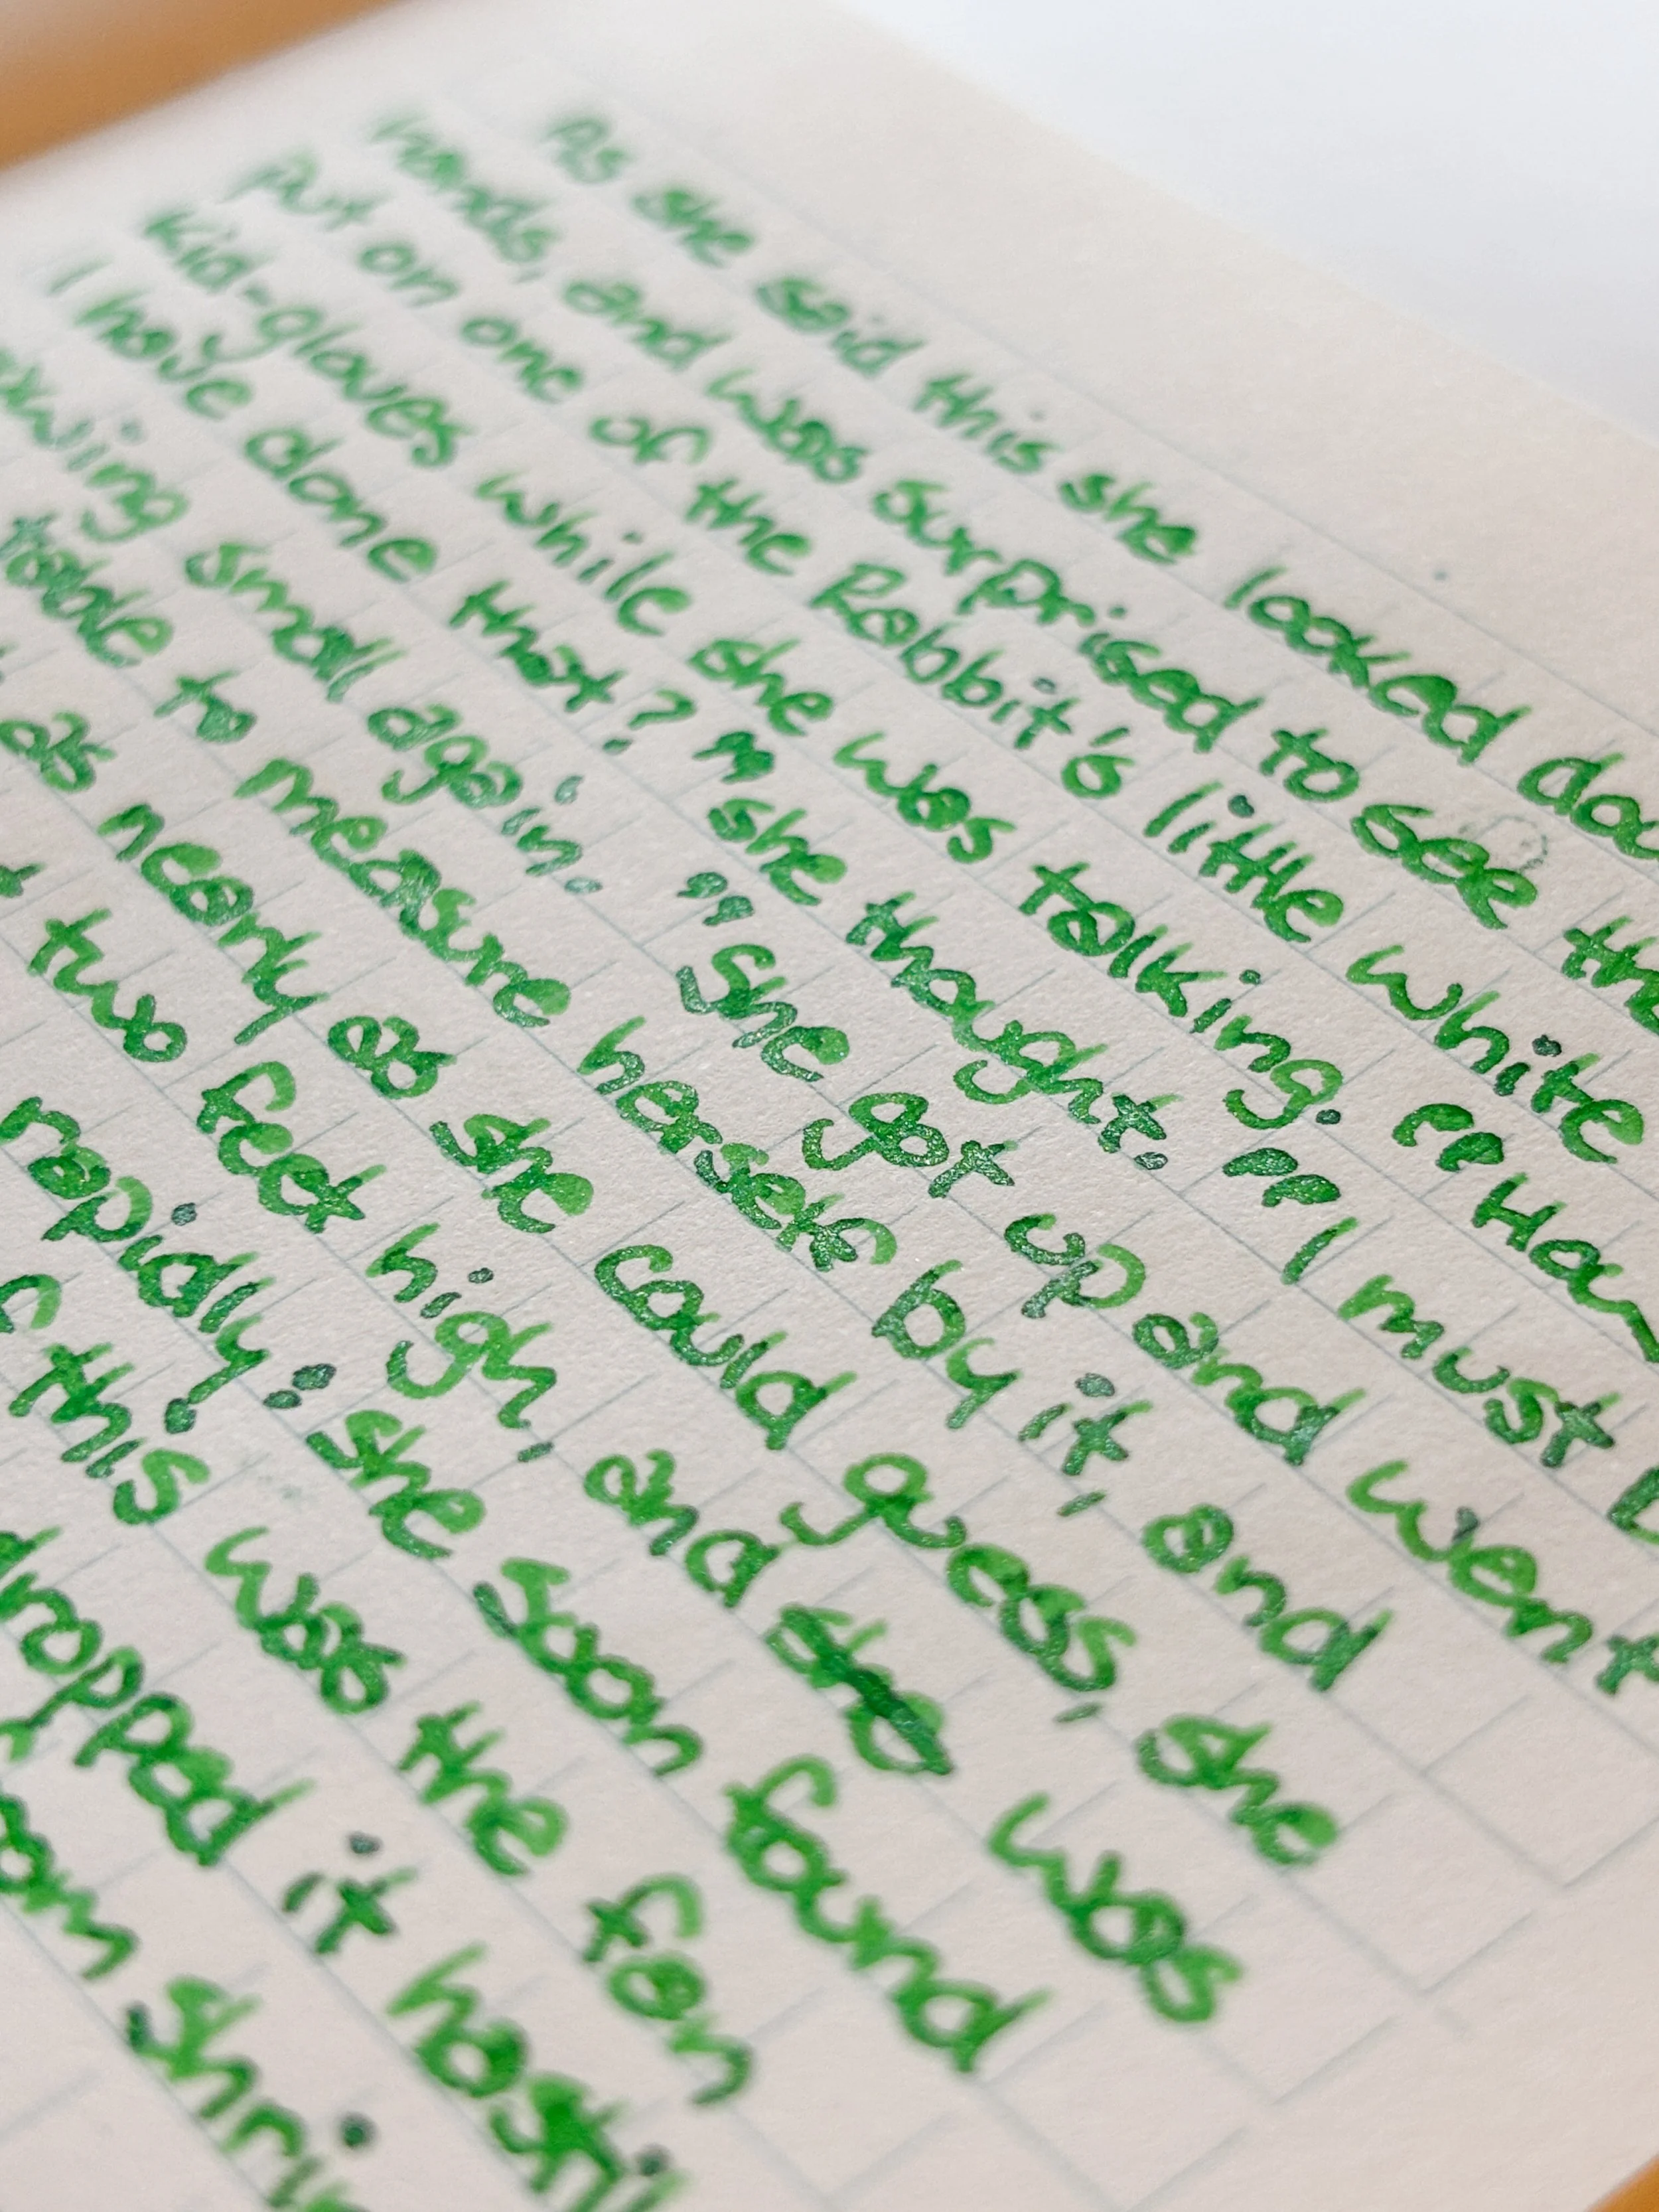 As she said this she looked dow
hands, and was surprised to see tha
put on one of the Rabbit's little white
kid-gloves while she was talking. "How
I have done that?" she thought. "I must b
owing small again." She got up and went
table to measure herself by it, and
as nearly as she could guess, she
t two feet high, and was
rapidly: she soon found
f this was the fan
dropped it hasti
om shri